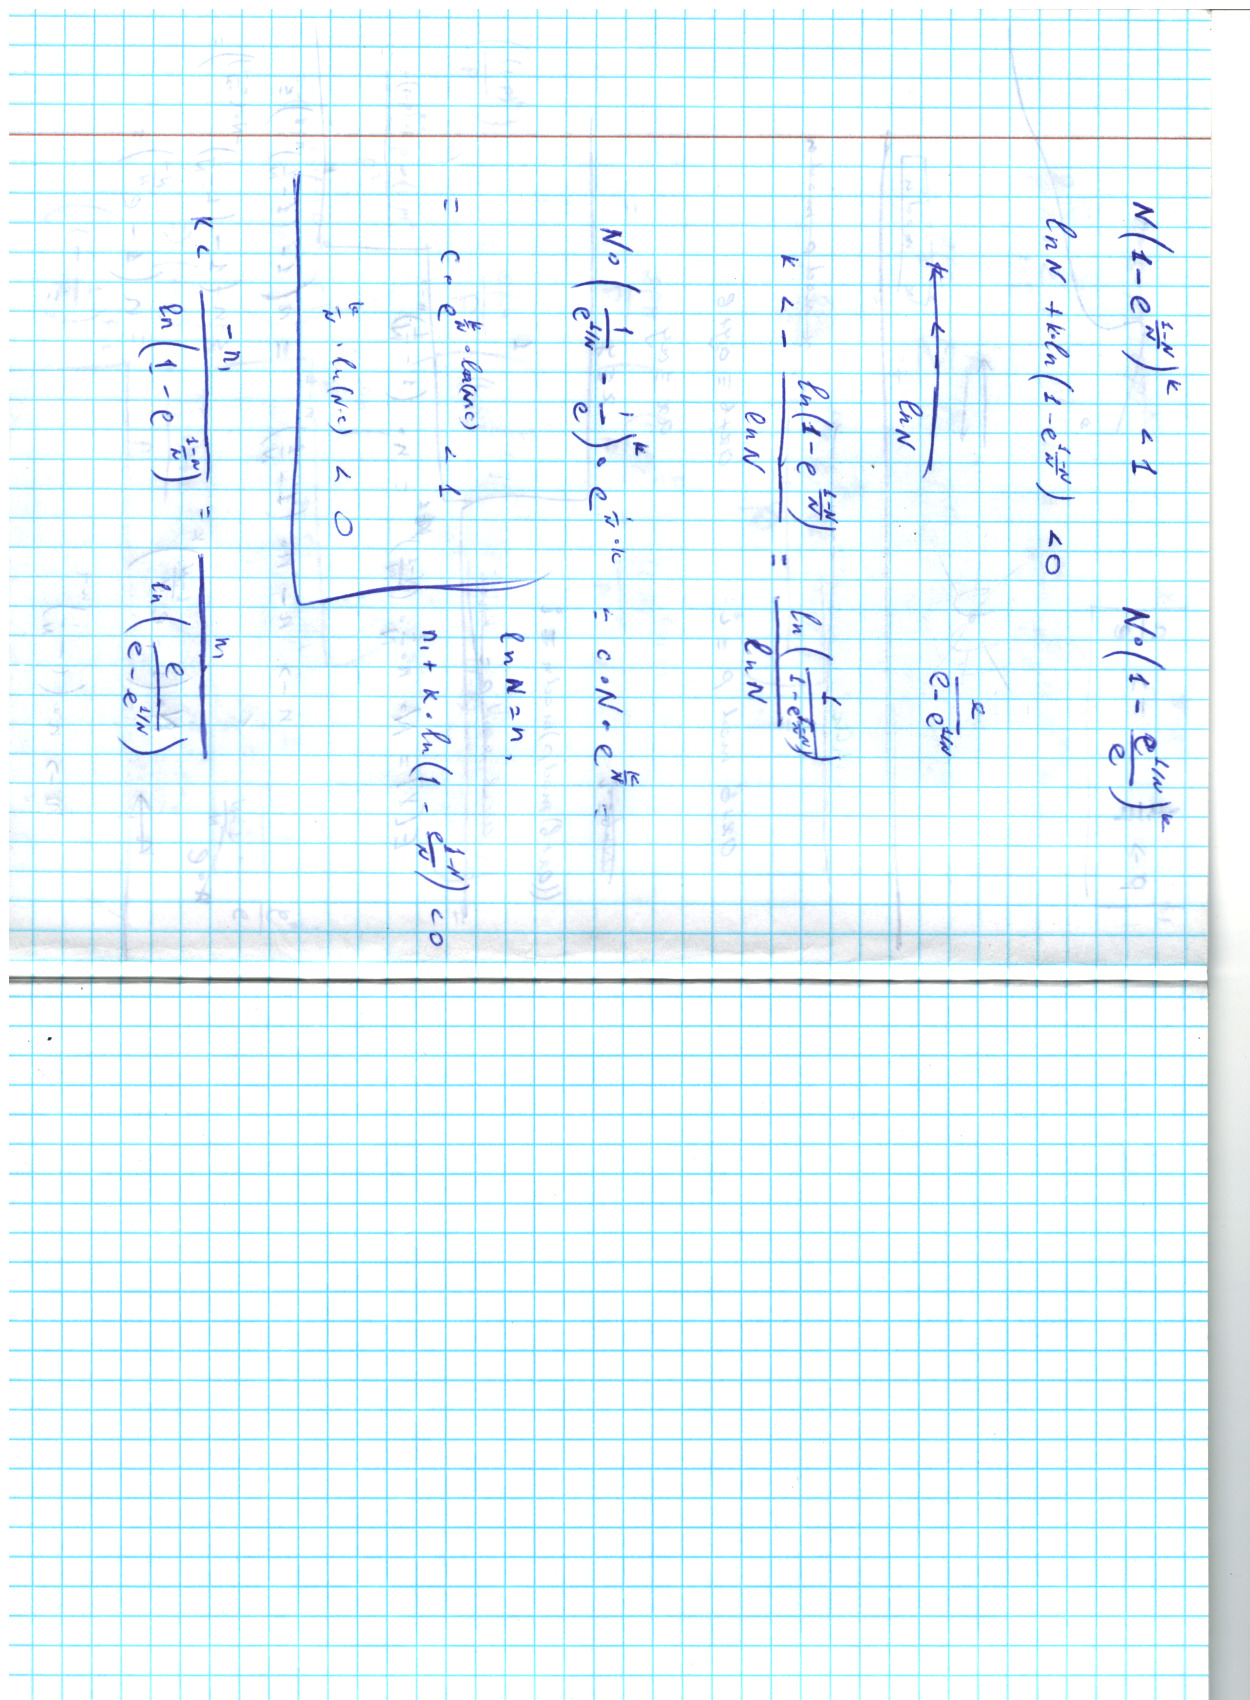 N(1 - e^{\frac{1-N}{N}})^k < 1     N·(1 - \frac{e^{1/N}}{e})^k
ln N + k·ln(1 - e^{\frac{1-N}{N}}) < 0
k < - ln N     \frac{e}{e - e^{1/N}}
k < - \frac{ln(1 - e^{\frac{1-N}{N}})}{ln N} = \frac{ln(\frac{1}{1 - e^{\frac{1-N}{N}}})}{ln N}
N·(\frac{1}{e^{1/N}} - \frac{1}{e})^k · e^{\frac{1}{N}·k} = c·N·e^{\frac{k}{N}} =
ln N = n_1
= c·e^{\frac{k}{N}·ln(N·c)} < 1     n_1 + k·ln(1 - e^{\frac{1-N}{N}}) < 0
\frac{k}{N}·ln(N·c) < 0
k < \frac{-n_1}{ln(1 - e^{\frac{1-N}{N}})} = \frac{n_1}{ln(\frac{e}{e - e^{1/N}})}